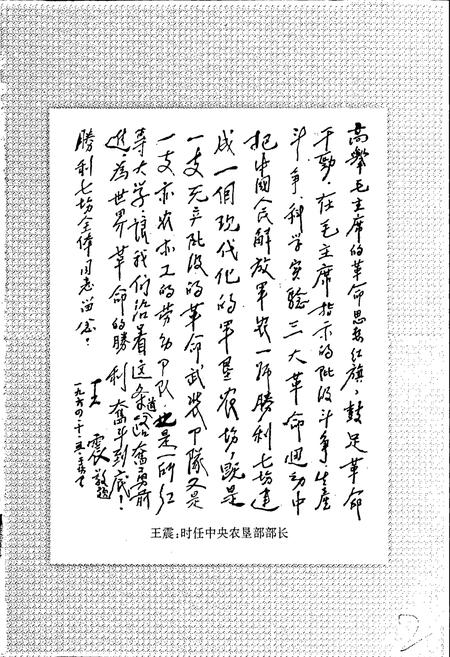 高舉毛主席的革命思想红旗，鼓足革命
干勁，在毛主席指示的阶级斗争、生産
斗争、科学实驗三大革命运动中
把中國人民解放军农一师勝利七场建
成一個现代化的军垦农场，既是
一支无产阶级的革命武装部队又是
一支亦农亦工的劳动部队，也是一所红
等大学，让我们沿着这条道路奋勇前
進，为世界革命的勝利奮斗到底！
勝利七场全体同志留念！
王震敬題
一九六四·十·五·
王震：时任中央农垦部部长